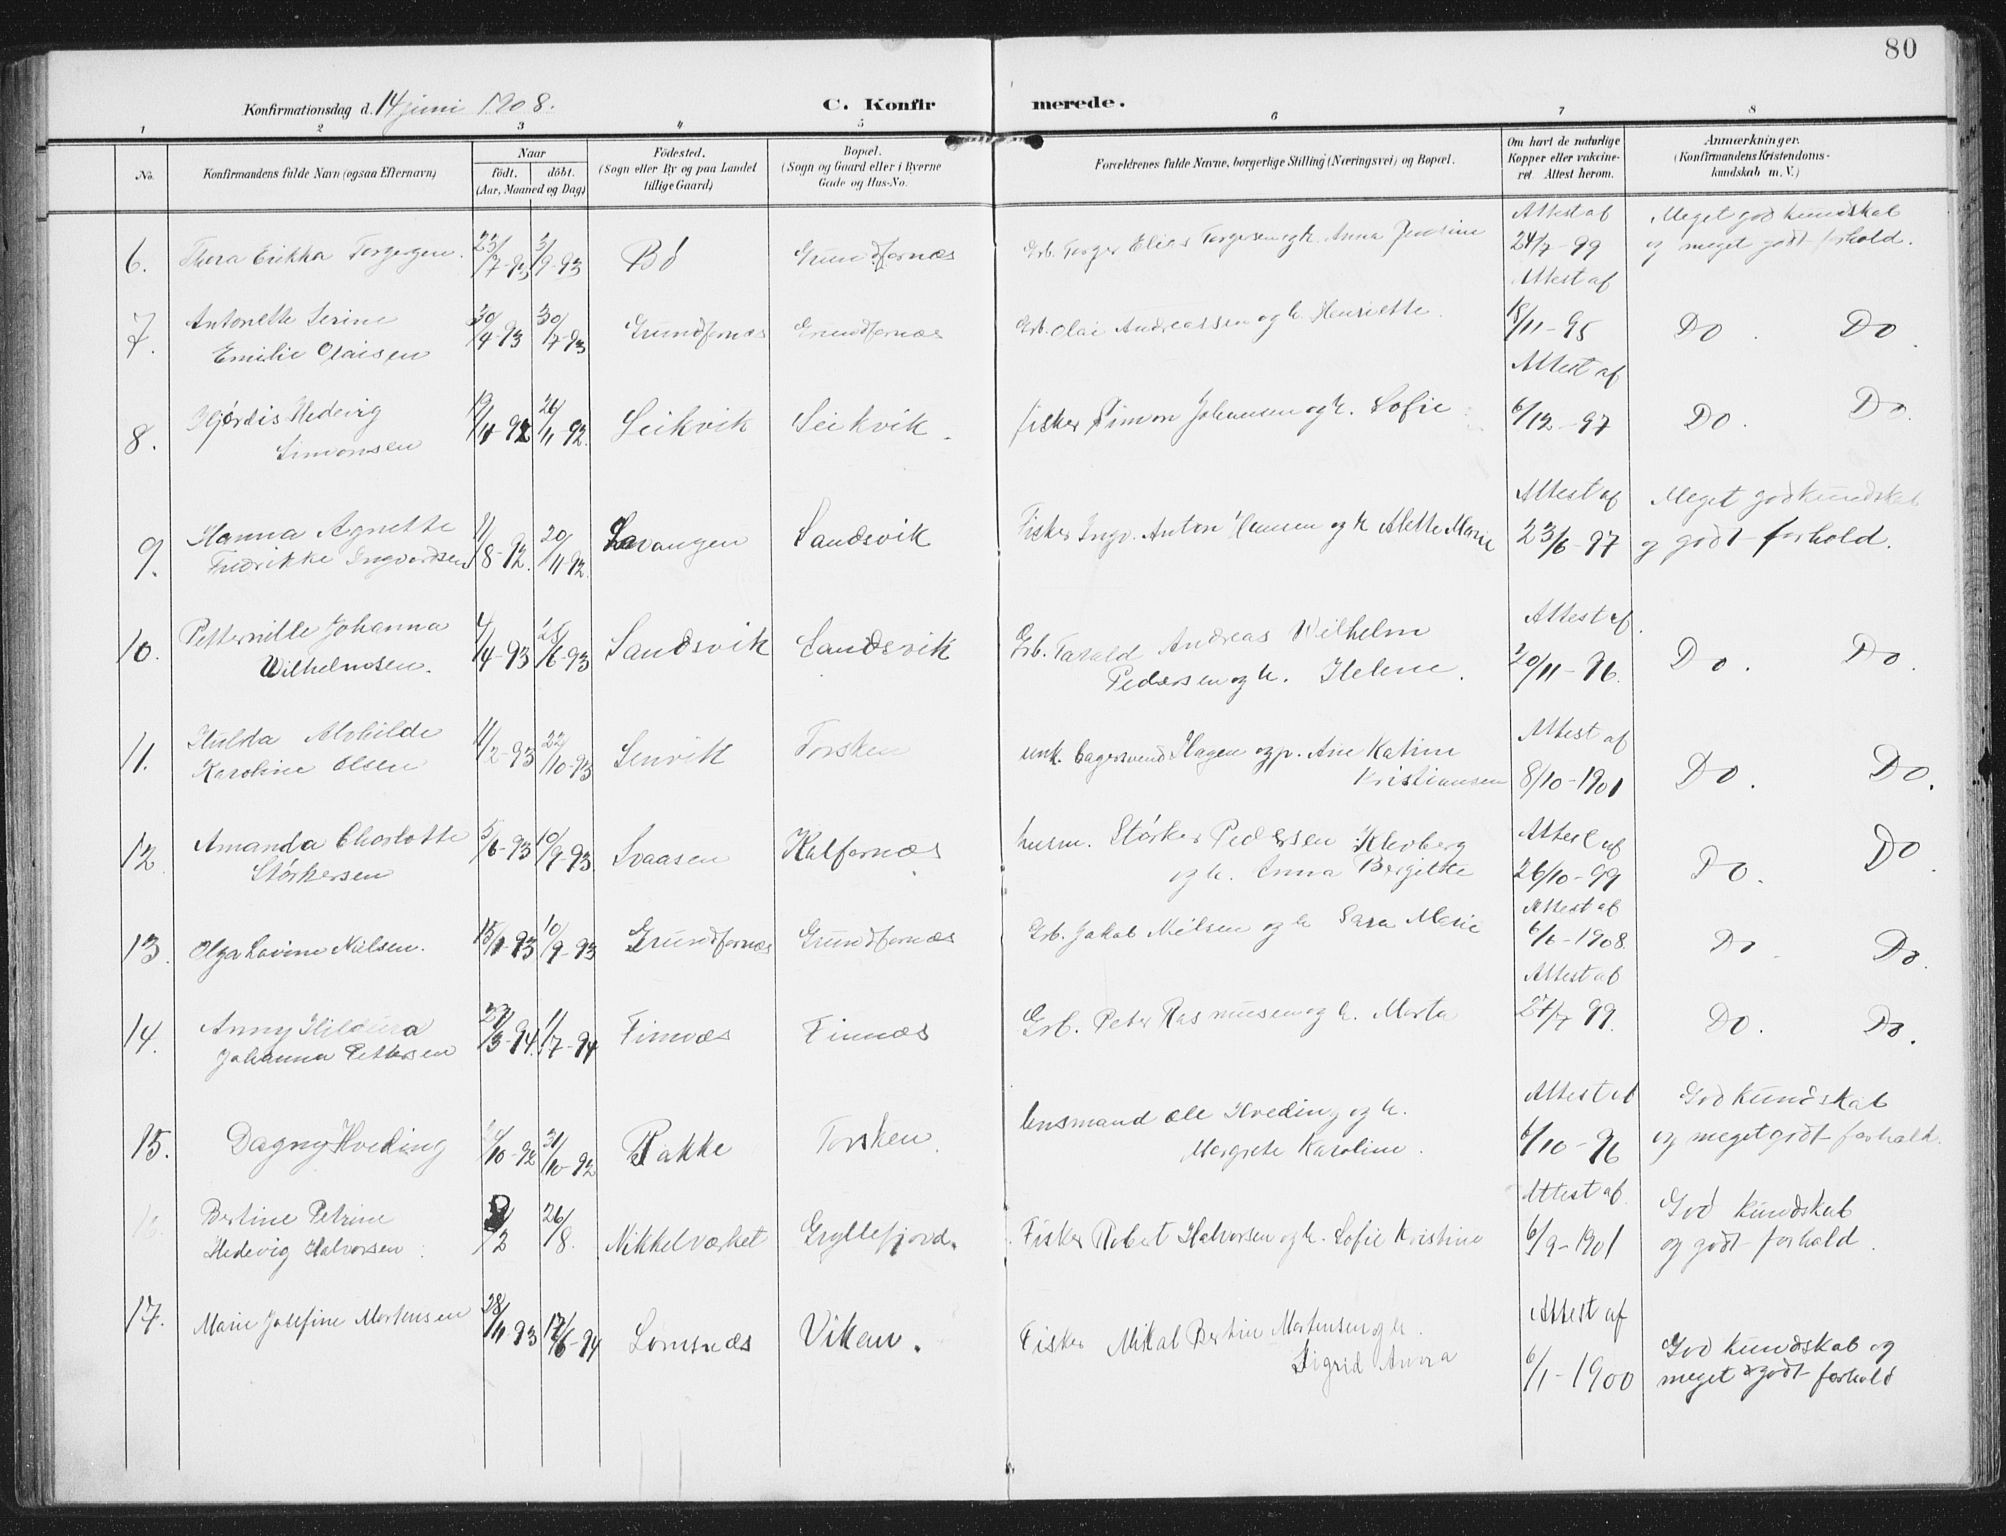 80
Konfirmationsdag d. 14 juni 1908.
C. Konfirmerede.
1 2 3 4 5 6 7 8
No.
Konfirmandens fulde Navn (ogsaa Efternavn)
Naar
født. døbt.
(Aar, Maaned og Dag)
Fødested.
(Sogn eller By og paa Landet
tillige Gaard)
Bopæl.
(Sogn og Gaard eller i Byerne
Gade og Hus-No.
Forældrenes fulde Navne, borgerlige Stilling (Næringsvei) og Bopæl.
Om havt de naturlige
Kopper eller vakcine-
ret. Attest herom.
Anmærkninger.
(Konfirmandens Kristendoms-
kundskab m. V.)
6. Thora Erikka Torgersen. 23/7-93 3/9-93 Bø Grundfornæs Grb. Torger Elias Torgersen og h. Anna Jensine Attest af 24/7-99 Meget god kundskab
og meget godt forhold.
7. Antonette Serine
Emilie Olaisen 30/4-93 30/7-93 Grundfornæs Grundfornæs Grb. Olai Andreassen og h. Henriette. Attest af 18/11-95 Do. Do.
8. Hjørdis Hedevig
Simonsen 19/4-92 26/11-92. Leikvik Leikvik. fisker Simon Johansen og h. Sofie Attest af 6/12-97 Do. Do.
9. Hanna Agnette
Fredrikke Ingvardsen 11/8-92. 20/11-92. Lavangen Sandsvik Fisker Ingv. Anton Hansen og h Alette Marie Attest af 23/6-97 Meget god kundskab
og godt forhold.
10. Petternille Johanna
Wilhelmsen. 4/4-93 25/6-93 Sandsvik Sandsvik Grb. Tarald Andreas Wilhelm
Pedersen og h. Helene. Attest af. 20/11-96. Do. Do.
11. Hulda Alvhilde
Karoline Olsen 11/2-93 22/10-93 Senvik Torsken unk. Hagen og p. Ane Katrine
Kristiansen Attest af 8/10-1901 Do. Do.
12. Amanda Charlotte
Størkersen 5/6-93 10/9-93. Svaasen Kalfornæs husm. Størker Pedersen Klevberg
og h. Anna Bergitte Attest af 26/10-99 Do. Do.
13. Olga Lovine Nielsen. 15/1-93 10/9-93 Grundfornæs Grundfornæs Grb. Jakob Nielsen og h Sara Marie Attest af 6/6-1908. Do. Do.
14. Anny Hildura
Johanna Pettersen 27/3-94. 1/7-94 Finnæs Finnæs Grb. Peter Rasmussen og h. Marta Attest af 27/7 99. Do. Do.
15. Dagny Hveding 10-92 31/10-92 Bakke Torsken. lensmand Ole Hveding og h.
Margrete Karoline. Attest af 6/10-96 God kundskab
og meget godt forhold.
16. Bertine Petrine
Hedevig Halvorsen. 26/8. Nikkelværket Gryllefjord. Fisker Robert Halvorsen og h. Sofie Kristine Attest af. 6/9-1901 God kundskab
og godt forhold.
17. Marie Josefine Mortensen 28/11-93 17/6-94 Lomsnæs Vikan. Fisker Mikal Bertin Mortensen og h.
Sigrid Anna Attest af 6/1-1900 God kundskab og
meget godt forhold